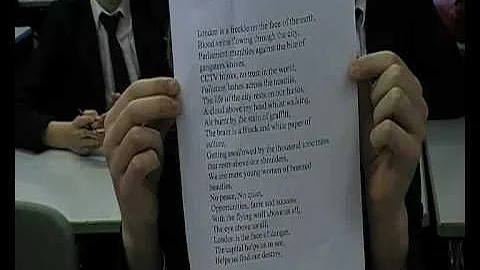 London is a freckle on the face of the earth.
Blood string flowing through the city.
Parliament mumbles against the bite of
gangsters knives.
CCTV blinks, no trust in the world.
Pollution lashes across the nostrils.
The life of the city rests on our hands.
A cloud above my head whilst walking,
Air burnt by the stain of graffiti,
The brain is a black and white paper of
culture.
Getting swallowed by the thousand tone mass
that rests above our shoulders,
We are mere young women of
beauties.
No peace, No quiet,
Opportunities, fame and success
With the flying wolf above us all,
The eye above us all,
London is the face of danger,
The capital helps us to see,
Helps us find our destiny.